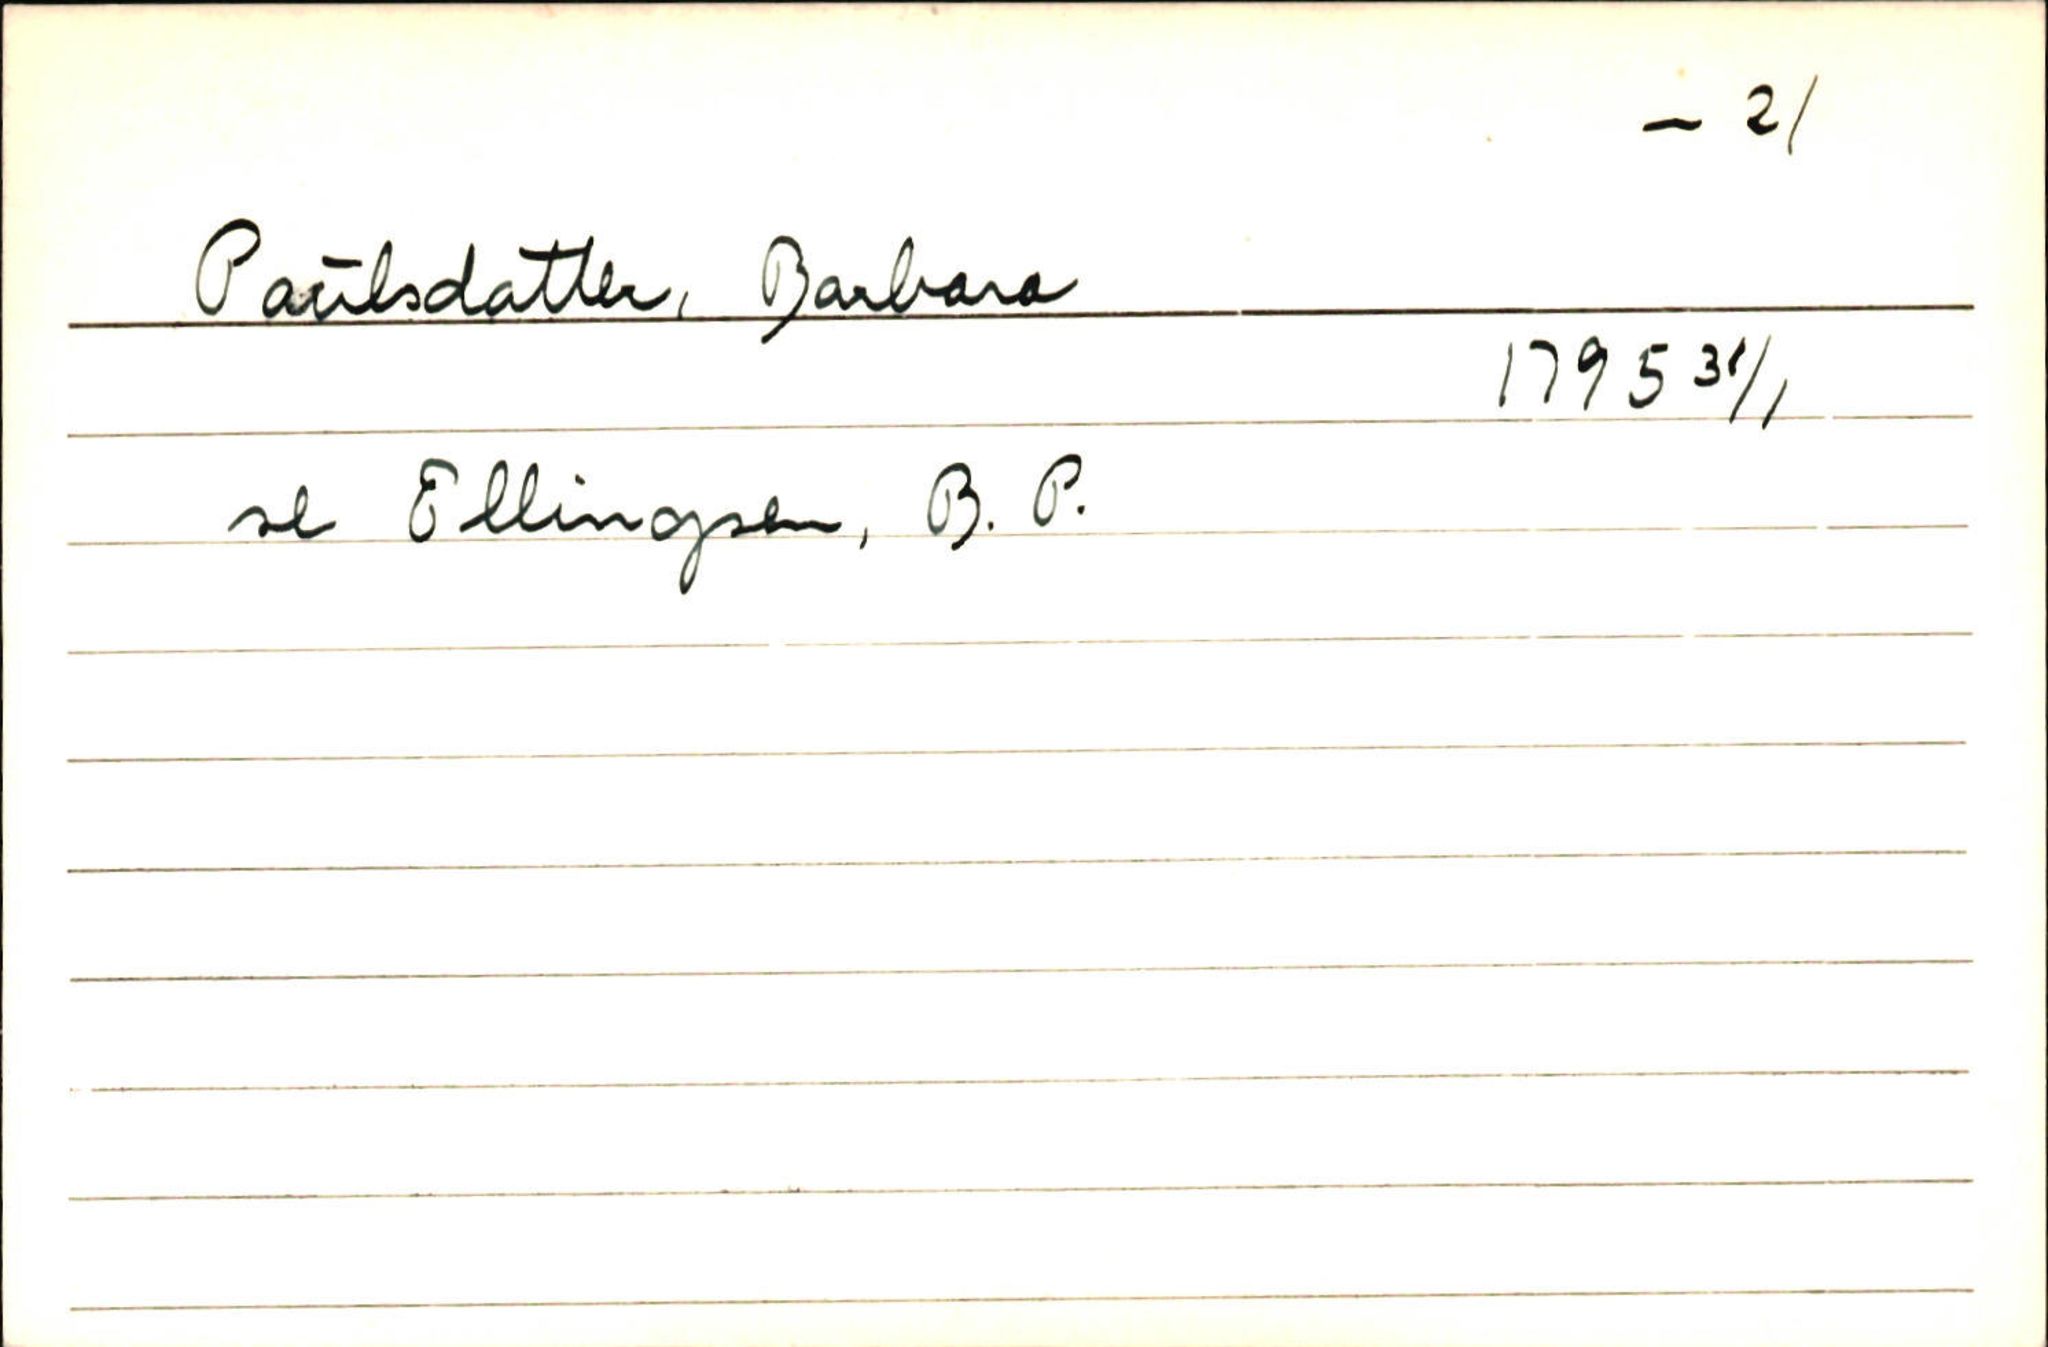 – 21
Paulsdatter, Barbara
1795 31/1
se Ellingsen, B. P.